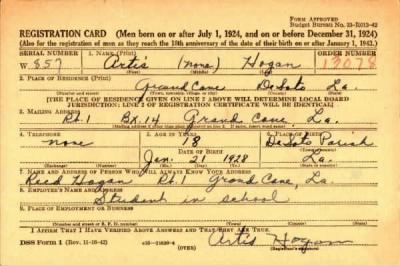 FORM APPROVED
Budget Bureau No. 33-R013-42
REGISTRATION CARD (Men born on or after July 1, 1924, and on or before December 31, 1924)
(Also for the registration of men as they reach the 18th anniversary of the date of their birth on or after January 1, 1943.)
SERIAL NUMBER 1. NAME (Print) ORDER NUMBER
W 857 Artis (none) Hogan 13078
(First) (Middle) (Last)
2. PLACE OF RESIDENCE (Print)
Grand Cane DeSoto La.
(Number and street) (Town, township, village, or city) (County) (State)
[THE PLACE OF RESIDENCE GIVEN ON LINE 2 ABOVE WILL DETERMINE LOCAL BOARD
JURISDICTION; LINE 2 OF REGISTRATION CERTIFICATE WILL BE IDENTICAL]
3. MAILING ADDRESS
Rt. 1 Bx. 14 Grand Cane, La.
[Mailing address if other than place indicated on line 2. If same, insert word same]
4. TELEPHONE 5. AGE IN YEARS 6. PLACE OF BIRTH
none 18 DeSoto Parish
DATE OF BIRTH (Town or county)
Jan. 21 1928 La.
(Exchange) (Number) (Mo.) (Day) (Yr.) (State or country)
7. NAME AND ADDRESS OF PERSON WHO WILL ALWAYS KNOW YOUR ADDRESS
Reed Hogan Rt. 1 Grand Cane, La.
8. EMPLOYER'S NAME AND ADDRESS
Student in school
9. PLACE OF EMPLOYMENT OR BUSINESS
(Number and street or R. F. D. number) (Town) (County) (State)
I AFFIRM THAT I HAVE VERIFIED ABOVE ANSWERS AND THAT THEY ARE TRUE.
DSS Form 1 (Rev. 11-16-42) (OVER) Artis Hogan
(Registrant's signature)